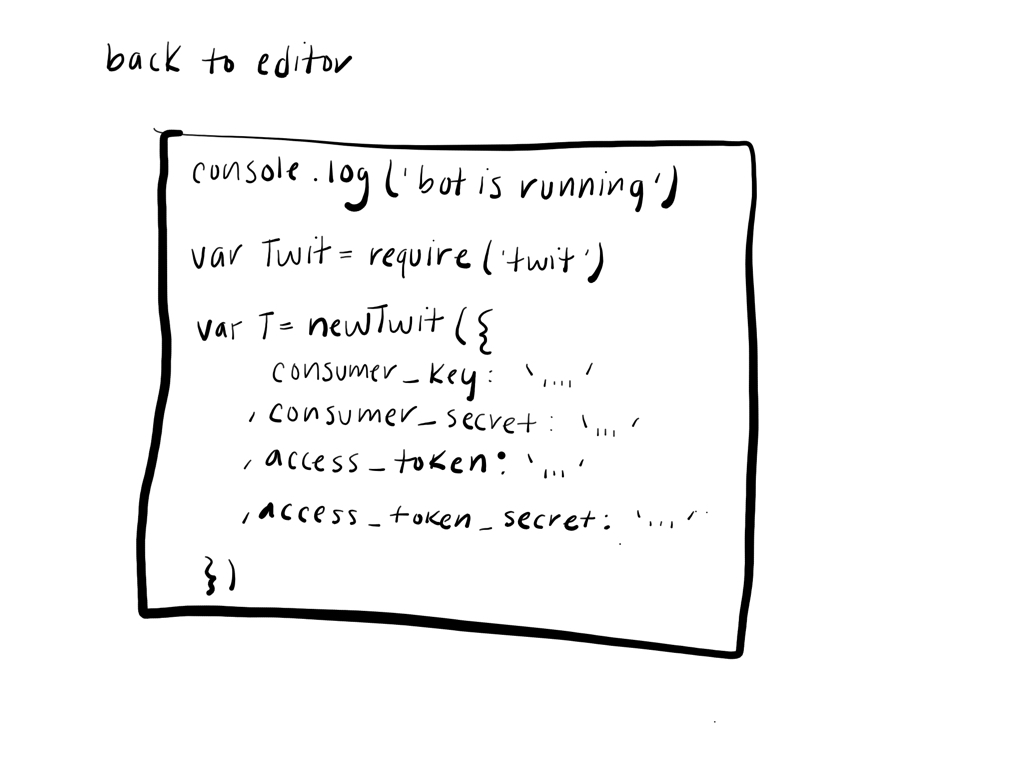 back to editor
console.log('bot is running')
var Twit = require('twit')
var T = newTwit({
consumer_key: '....'
, consumer_secret: '...'
, access_token: '...'
, access_token_secret: '....'
})